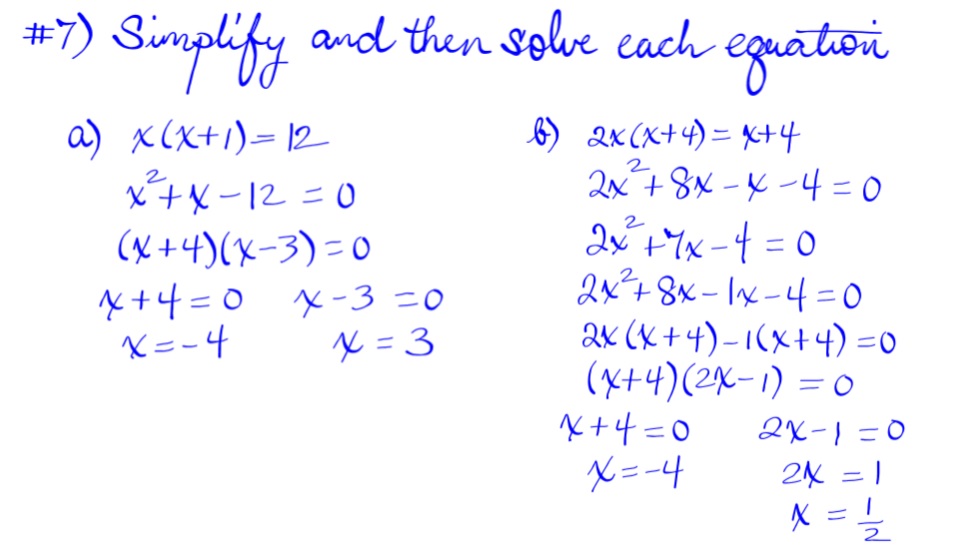 #7) Simplify and then solve each equation
a) x(x+1)=12
x²+x-12=0
(x+4)(x-3)=0
x+4=0 x-3=0
x=-4 x=3
b) 2x(x+4)=x+4
2x²+8x-x-4=0
2x²+7x-4=0
2x²+8x-1x-4=0
2x(x+4)-1(x+4)=0
(x+4)(2x-1)=0
x+4=0 2x-1=0
x=-4 2x=1
x=1/2